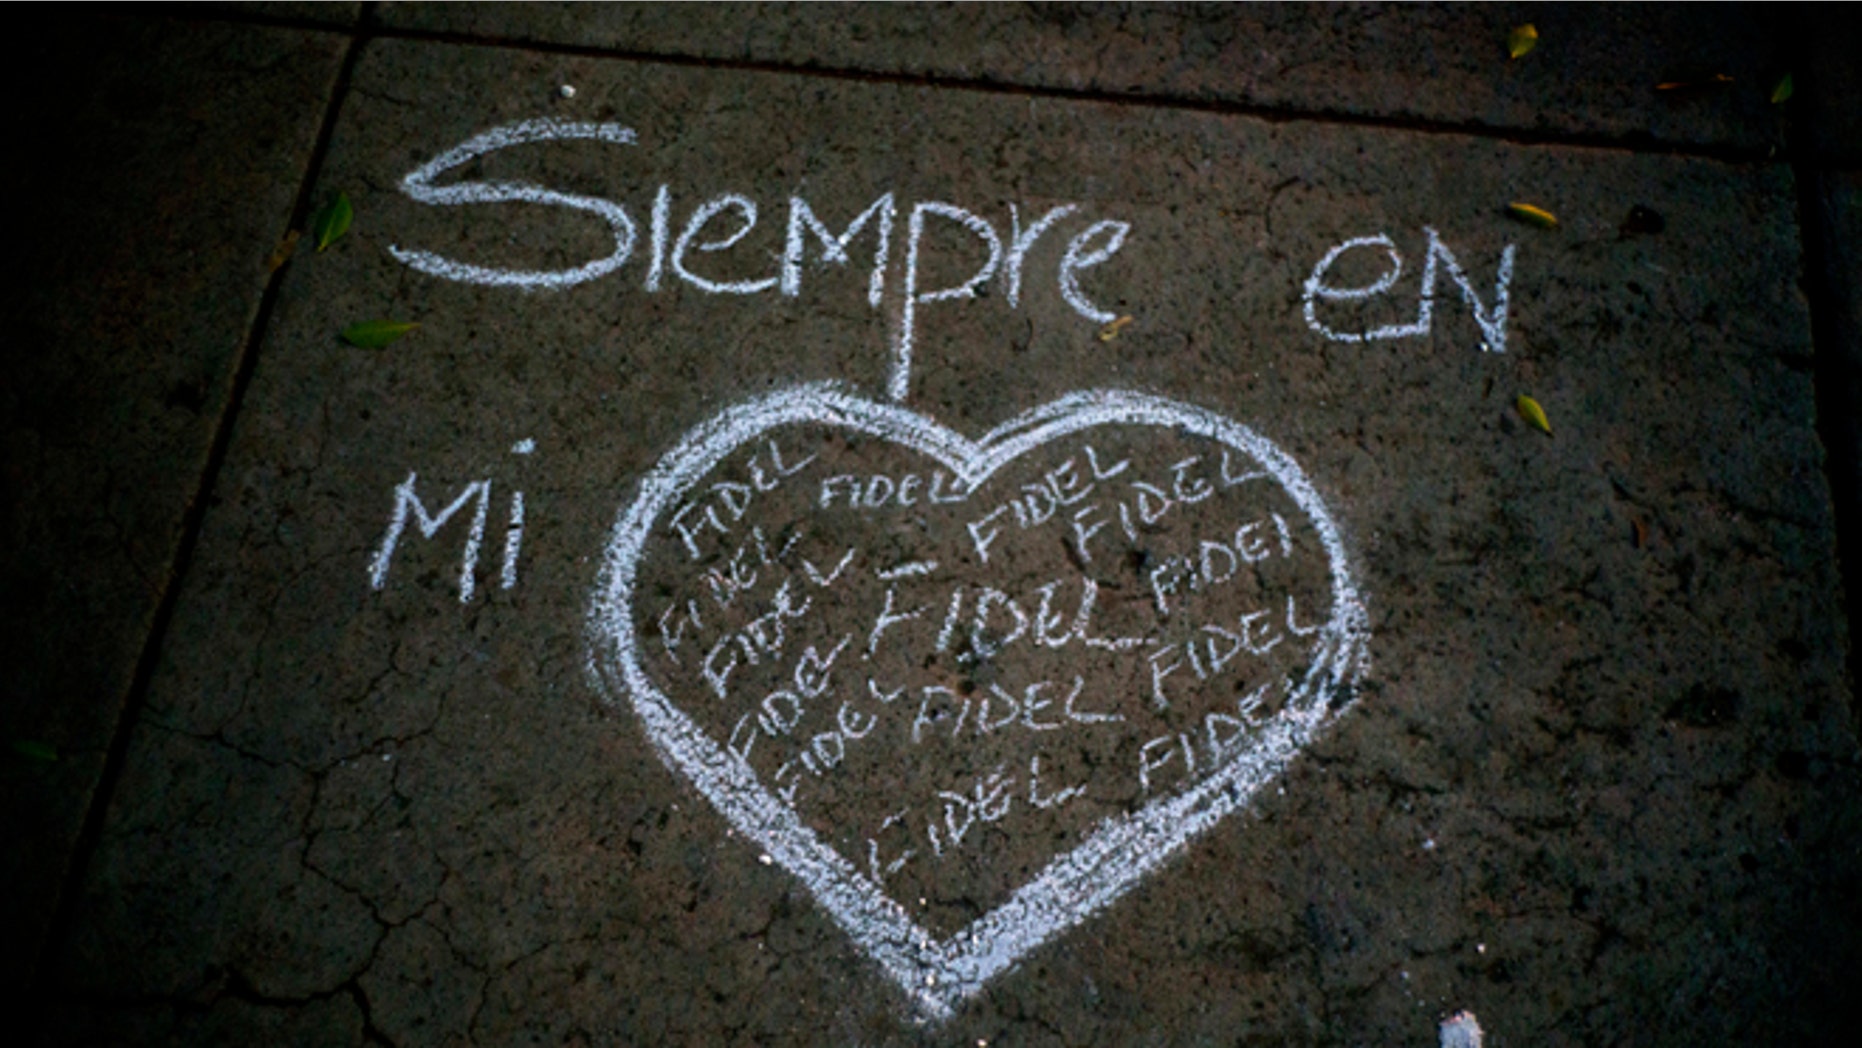 Siempre en
Mi
FIDEL FIDEL FIDEL FIDEL
FIDEL FIDEL FIDEL FIDEL
FIDEL FIDEL FIDEL FIDEL
FIDEL FIDEL
FIDEL